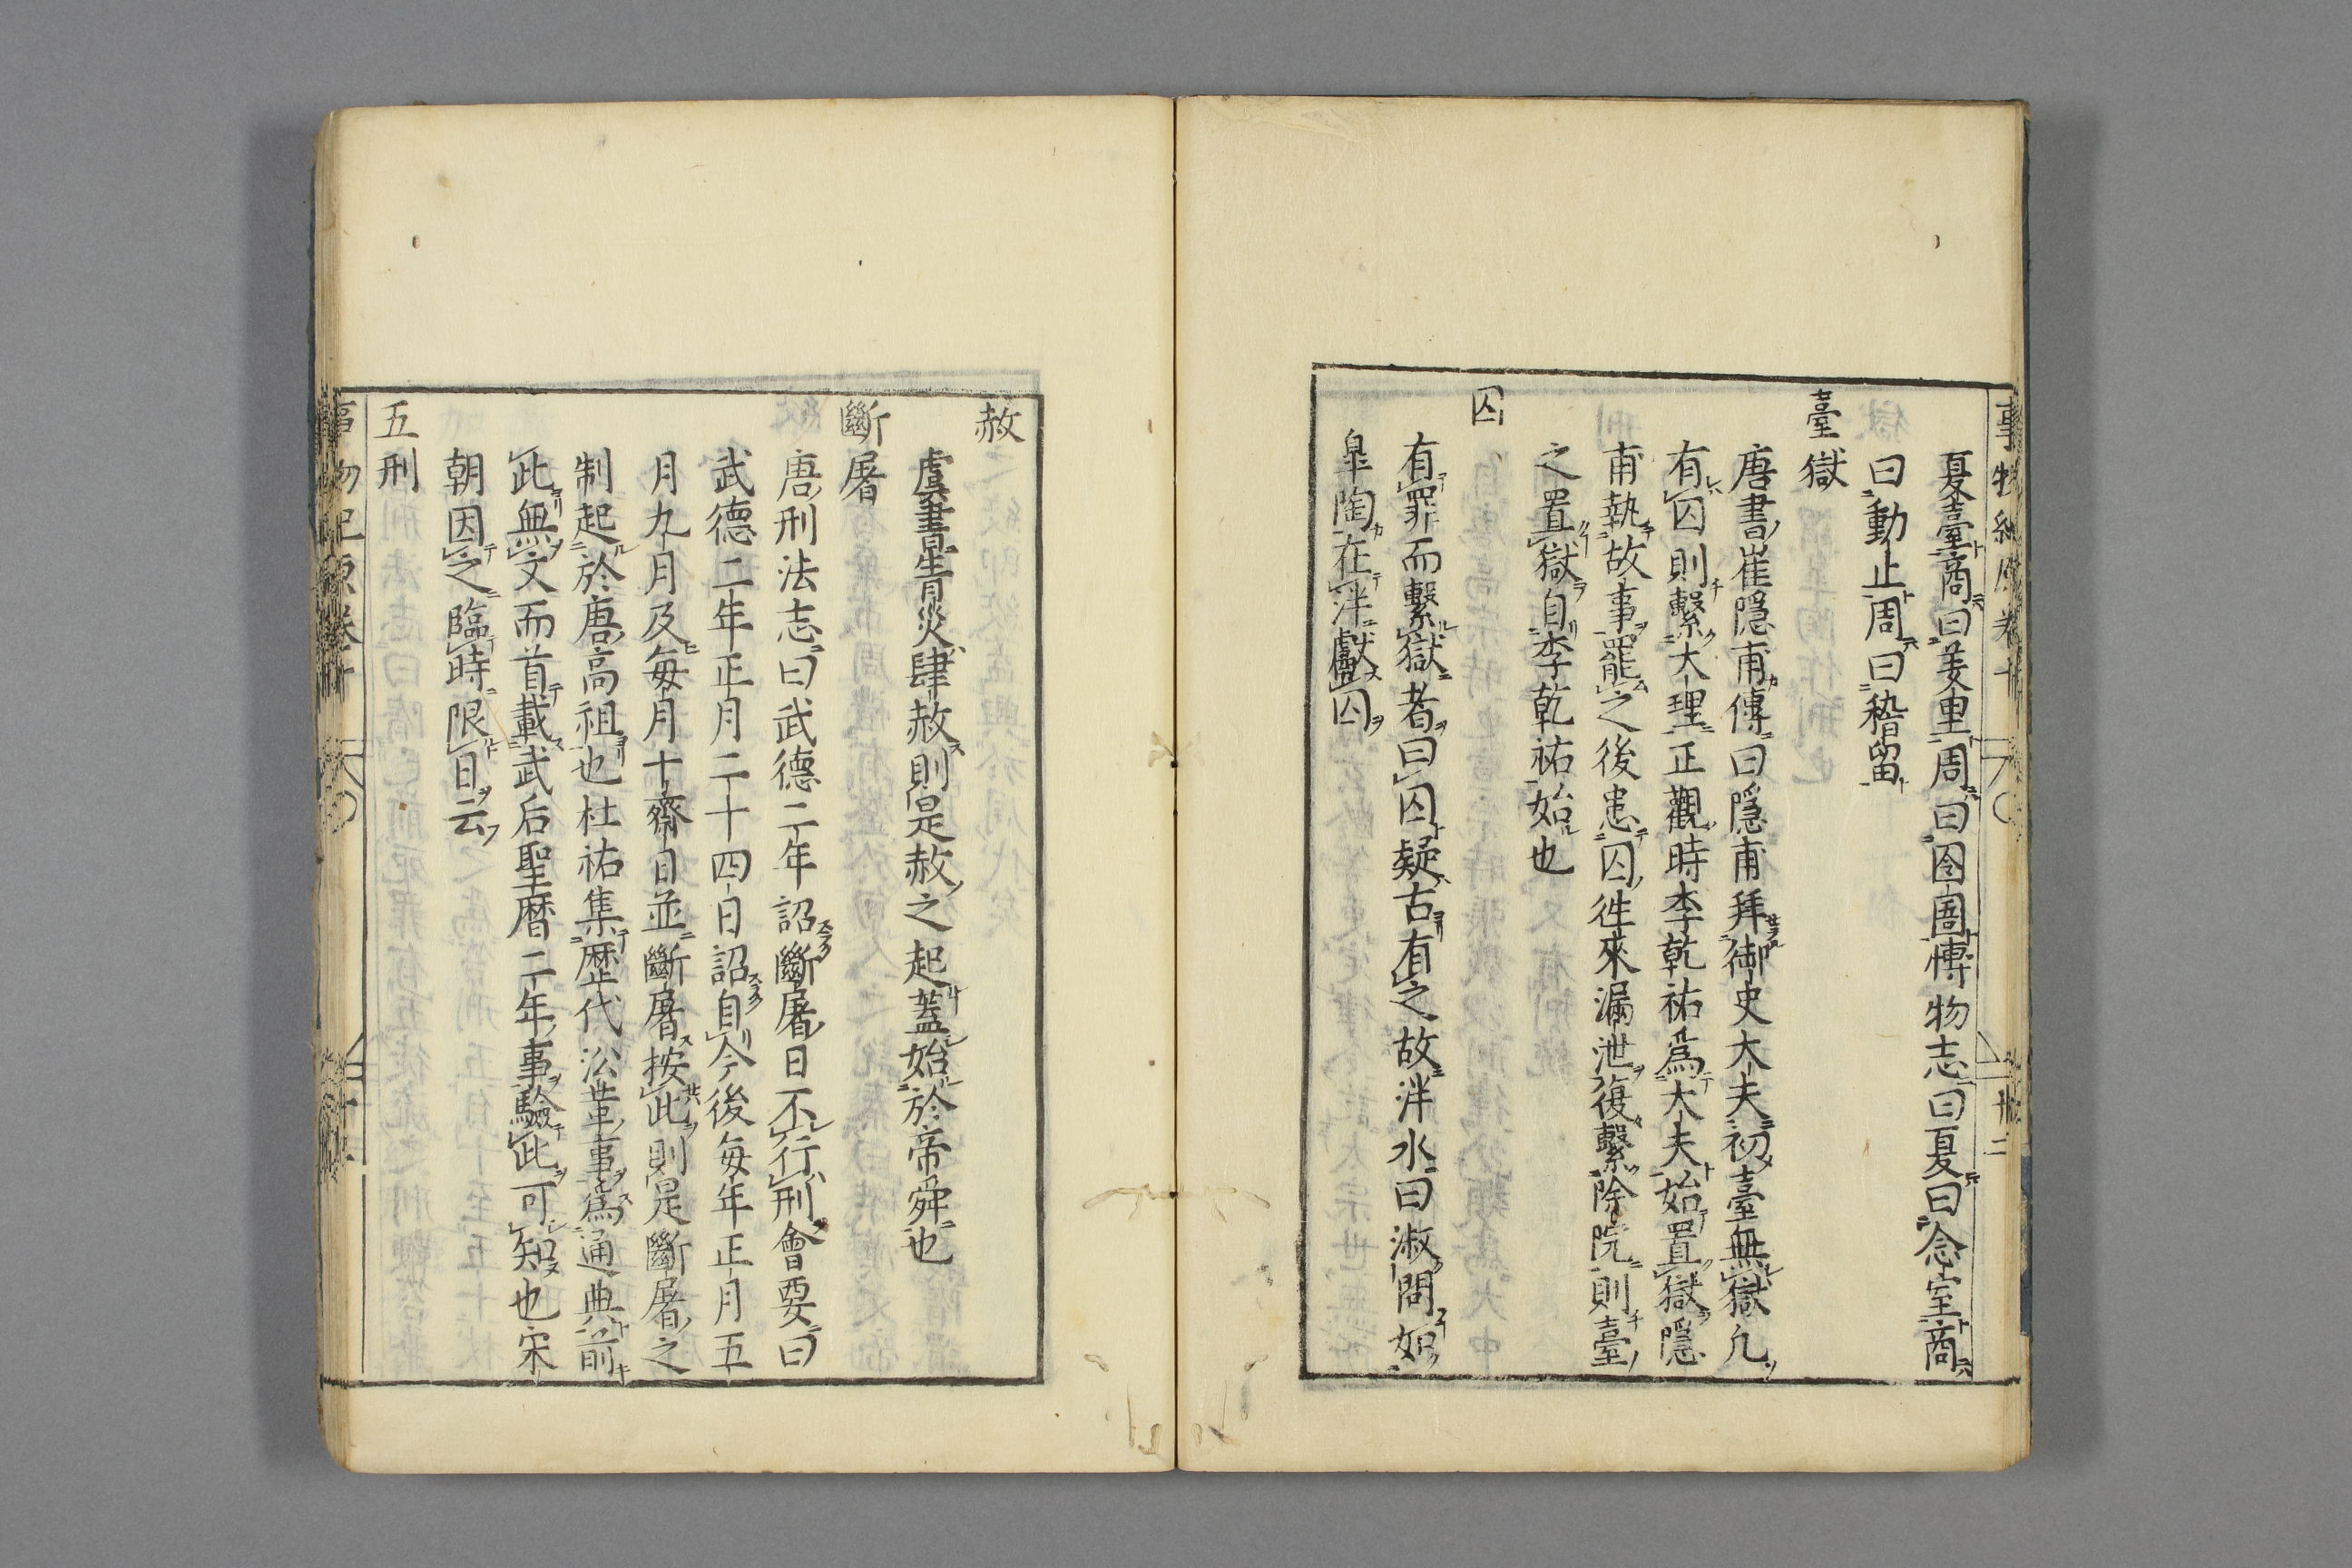 夏臺商曰羑里周曰囹圄博物志曰夏曰念室商
曰動止周曰稽留
臺獄
唐書崔隱甫傳曰隱甫拜御史大夫初臺無獄凡
有囚則繫大理正觀時李乾祐爲大夫始置獄隱
甫執故事罷之後患囚徃來漏泄復繫除院則臺
之置獄自李乾祐始也
囚
有罪而繫獄者曰囚疑古有之故泮水曰淑問如
皐陶在泮獻囚
赦
虞書眚災肆赦則是赦之起蓋始於帝舜也
斷屠
唐刑法志曰武德二年詔斷屠日不行刑會要曰
武德二年正月二十四日詔自今後每年正月五
月九月及每月十齋日並斷屠按此則是斷屠之
制起於唐高祖也杜祐集歷代㳂革事爲通典前
此無文而首載武后聖曆二年事驗此可知也宋
朝因之臨時限日云
五刑